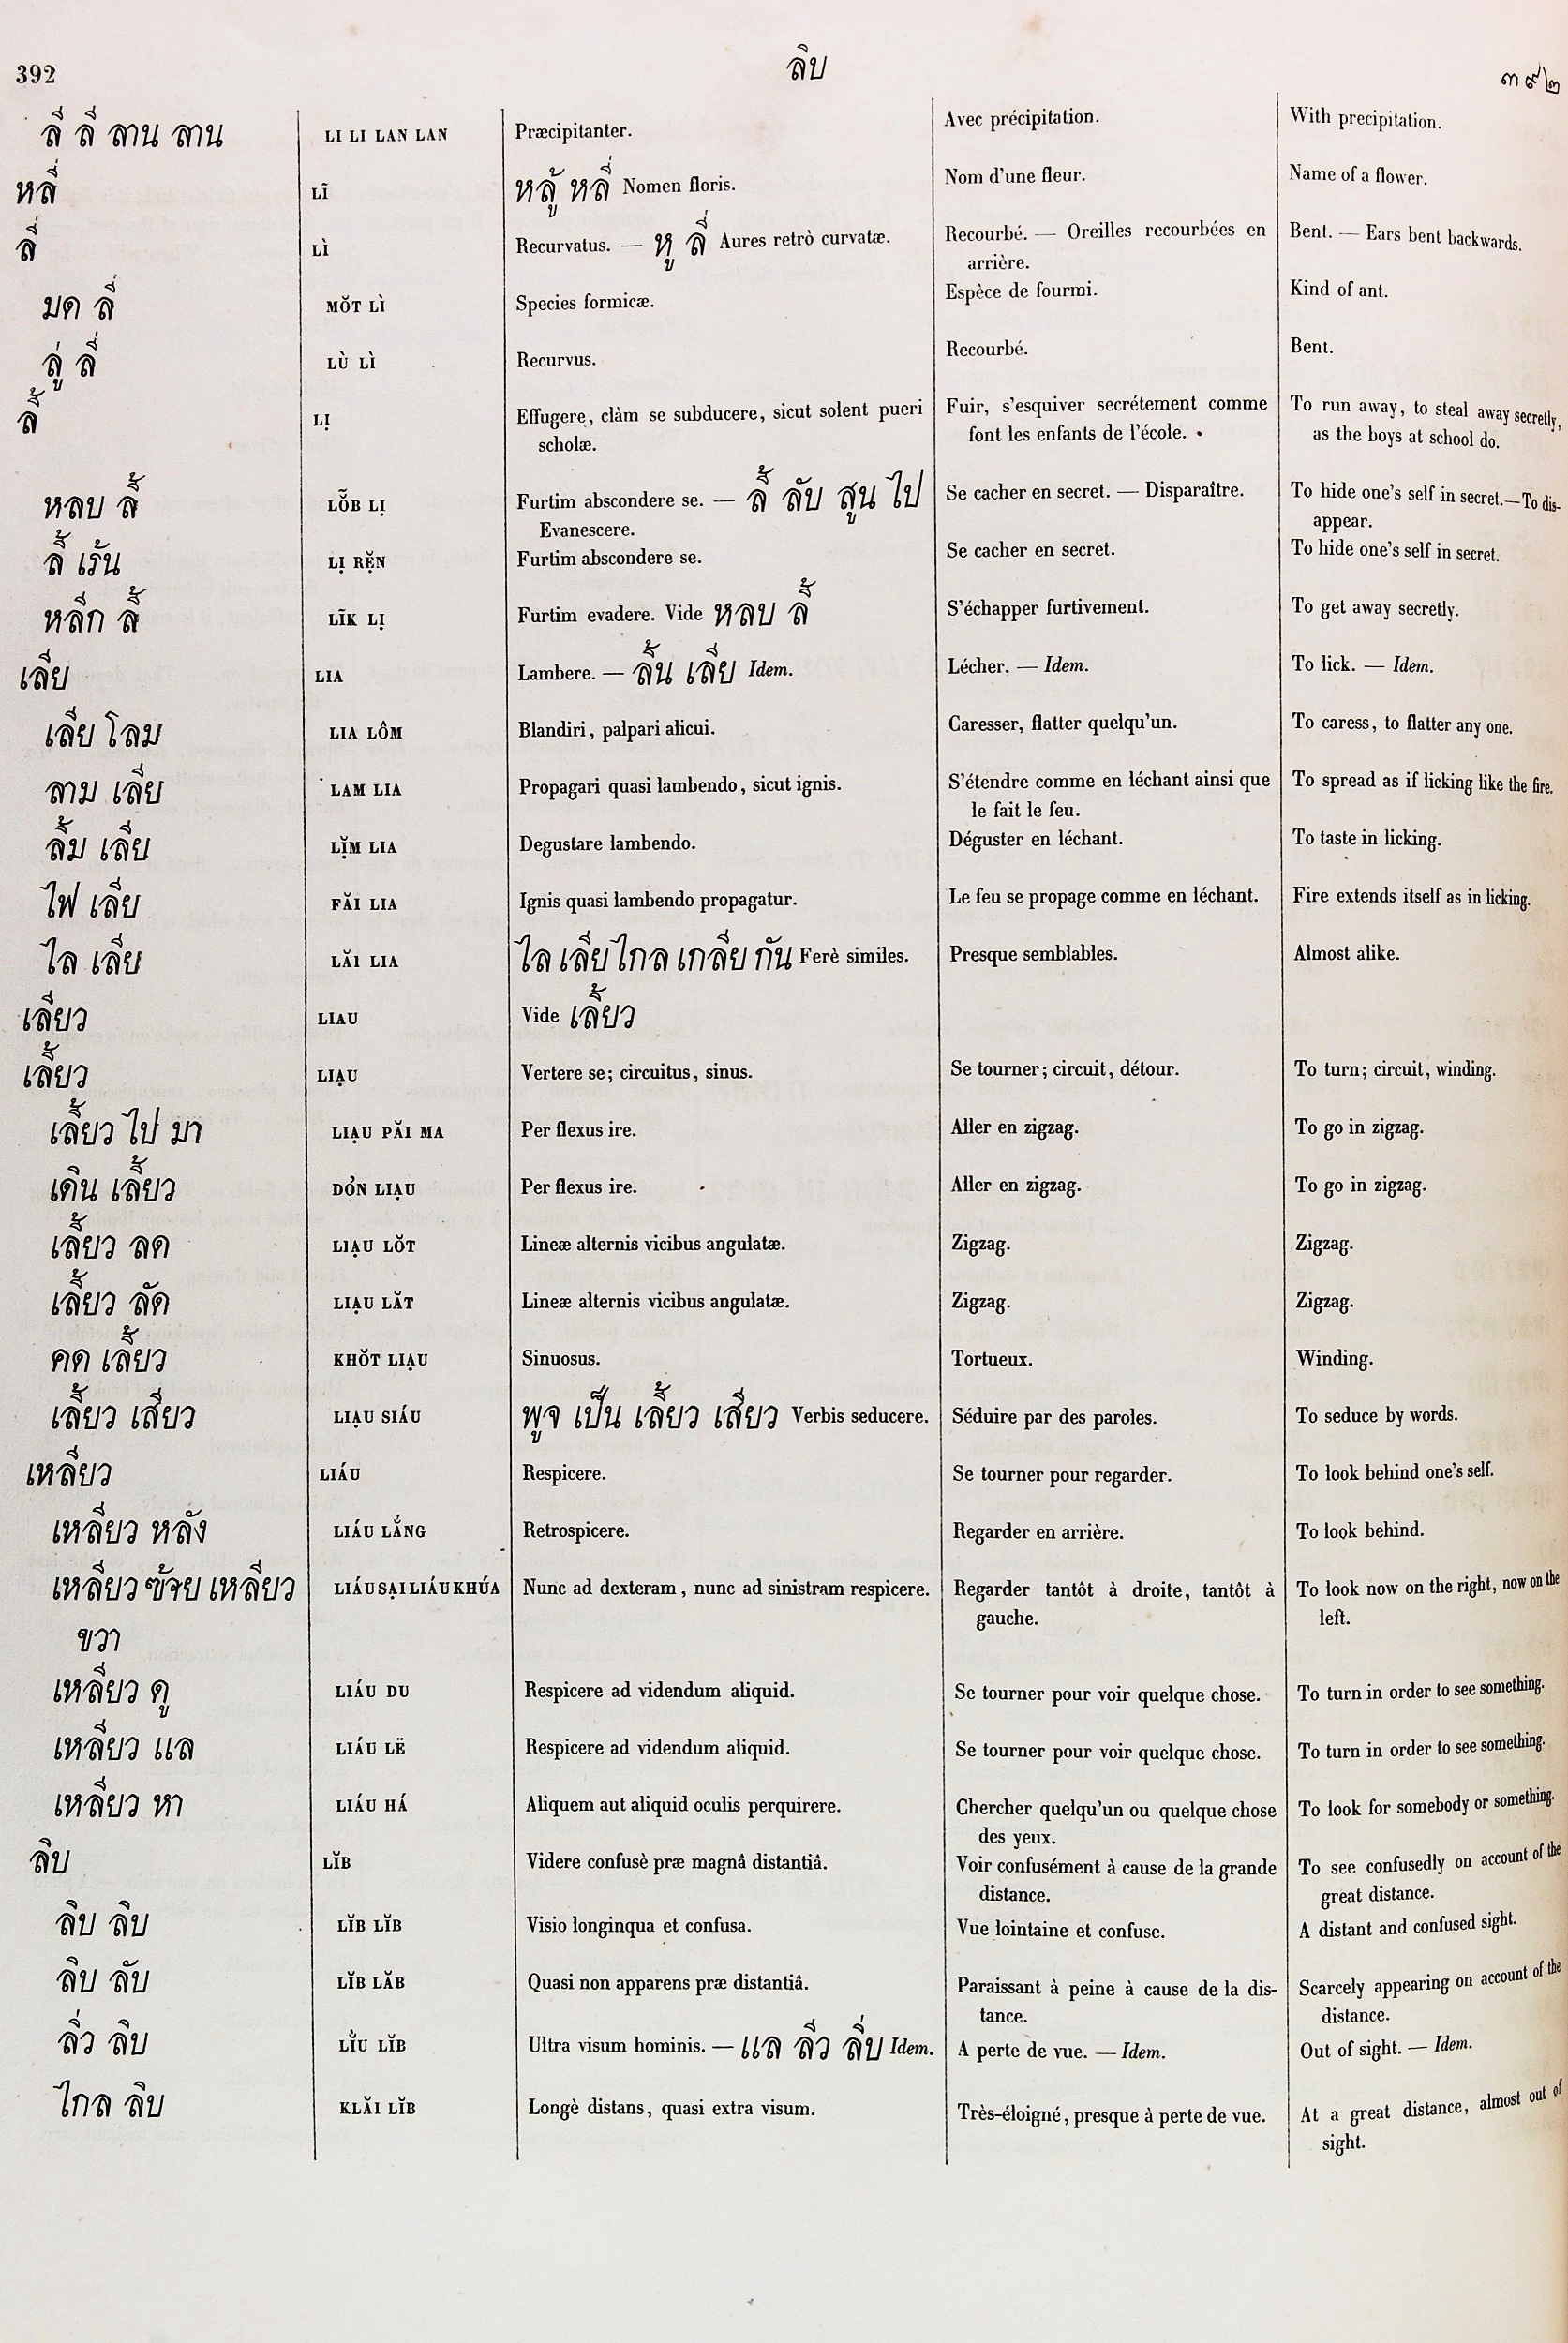 392
ลิบ
๓๙๒
ลี ลี ลาน ลาน LI LI LAN LAN Præcipitanter. Avec précipitation. With precipitation.
หลี่ LĨ หลู้ หลี่ Nomen floris. Nom d'une fleur. Name of a flower.
ลี่ LÌ Recurvatus. — หู ลี่ Aures retrò curvatæ. Recourbé. — Oreilles recourbées en Bent. — Ears bent backwards.
arrière.
มด ลี่ MŎT LÌ Species formicæ. Espèce de fourmi. Kind of ant.
ลู่ ลี่ LÙ LÌ Recurvus. Recourbé. Bent.
ลี้ LỊ Effugere, clàm se subducere, sicut solent pueri Fuir, s'esquiver secrétement comme To run away, to steal away secretly,
scholæ. font les enfants de l'école. as the boys at school do.
หลบ ลี้ LŎB LỊ Furtim abscondere se. — ลี้ ลับ สูน ไป Se cacher en secret. — Disparaître. To hide one's self in secret. — To dis-
Evanescere. appear.
ลี้ เร้น LỊ RẸ̆N Furtim abscondere se. Se cacher en secret. To hide one's self in secret.
หลีก ลี้ LĨK LỊ Furtim evadere. Vide หลบ ลี้ S'échapper furtivement. To get away secretly.
เลีย LIA Lambere. — ลิ้น เลีย Idem. Lécher. — Idem. To lick. — Idem.
เลีย โลม LIA LÔM Blandiri, palpari alicui. Caresser, flatter quelqu'un. To caress, to flatter any one.
ลาม เลีย LAM LIA Propagari quasi lambendo, sicut ignis. S'étendre comme en léchant ainsi que To spread as if licking like the fire.
le fait le feu.
ลิ้ม เลีย LỊ̆M LIA Degustare lambendo. Déguster en léchant. To taste in licking.
ไฟ เลีย FĂI LIA Ignis quasi lambendo propagatur. Le feu se propage comme en léchant. Fire extends itself as in licking.
ไล เลีย LĂI LIA ไล เลีย ไกล เกลีย กัน Ferè similes. Presque semblables. Almost alike.
เลียว LIAU Vide เลี้ยว
เลี้ยว LIẠU Vertere se; circuitus, sinus. Se tourner; circuit, détour. To turn; circuit, winding.
เลี้ยว ไป มา LIẠU PĂI MA Per flexus ire. Aller en zigzag. To go in zigzag.
เดิน เลี้ยว DỎN LIẠU Per flexus ire. Aller en zigzag. To go in zigzag.
เลี้ยว ลด LIẠU LŎT Lineæ alternis vicibus angulatæ. Zigzag. Zigzag.
เลี้ยว ลัด LIẠU LĂT Lineæ alternis vicibus angulatæ. Zigzag. Zigzag.
คด เลี้ยว KHŎT LIẠU Sinuosus. Tortueux. Winding.
เลี้ยว เสียว LIẠU SIÁU พูจ เป็น เลี้ยว เสียว Verbis seducere. Séduire par des paroles. To seduce by words.
เหลียว LIÁU Respicere. Se tourner pour regarder. To look behind one's self.
เหลียว หลัง LIÁU LẮNG Retrospicere. Regarder en arrière. To look behind.
เหลียว ซ้าย เหลียว LIÁU SẠI LIÁU KHÚA Nunc ad dexteram, nunc ad sinistram respicere. Regarder tantôt à droite, tantôt à To look now on the right, now on the
ขวา gauche. left.
เหลียว ดู LIÁU DU Respicere ad videndum aliquid. Se tourner pour voir quelque chose. To turn in order to see something.
เหลียว แล LIÁU LË Respicere ad videndum aliquid. Se tourner pour voir quelque chose. To turn in order to see something.
เหลียว หา LIÁU HÁ Aliquem aut aliquid oculis perquirere. Chercher quelqu'un ou quelque chose To look for somebody or something.
des yeux.
ลิบ LĬB Videre confusè præ magnâ distantiâ. Voir confusément à cause de la grande To see confusedly on account of the
distance. great distance.
ลิบ ลิบ LĬB LĬB Visio longinqua et confusa. Vue lointaine et confuse. A distant and confused sight.
ลิบ ลับ LĬB LĂB Quasi non apparens præ distantiâ. Paraissant à peine à cause de la dis- Scarcely appearing on account of the
tance. distance.
ลิ่ว ลิบ LĬ̀U LĬB Ultra visum hominis. — แล ลิ่ว ลิ่บ Idem. A perte de vue. — Idem. Out of sight. — Idem.
ไกล ลิบ KLĂI LĬB Longè distans, quasi extra visum. Très-éloigné, presque à perte de vue. At a great distance, almost out of
sight.